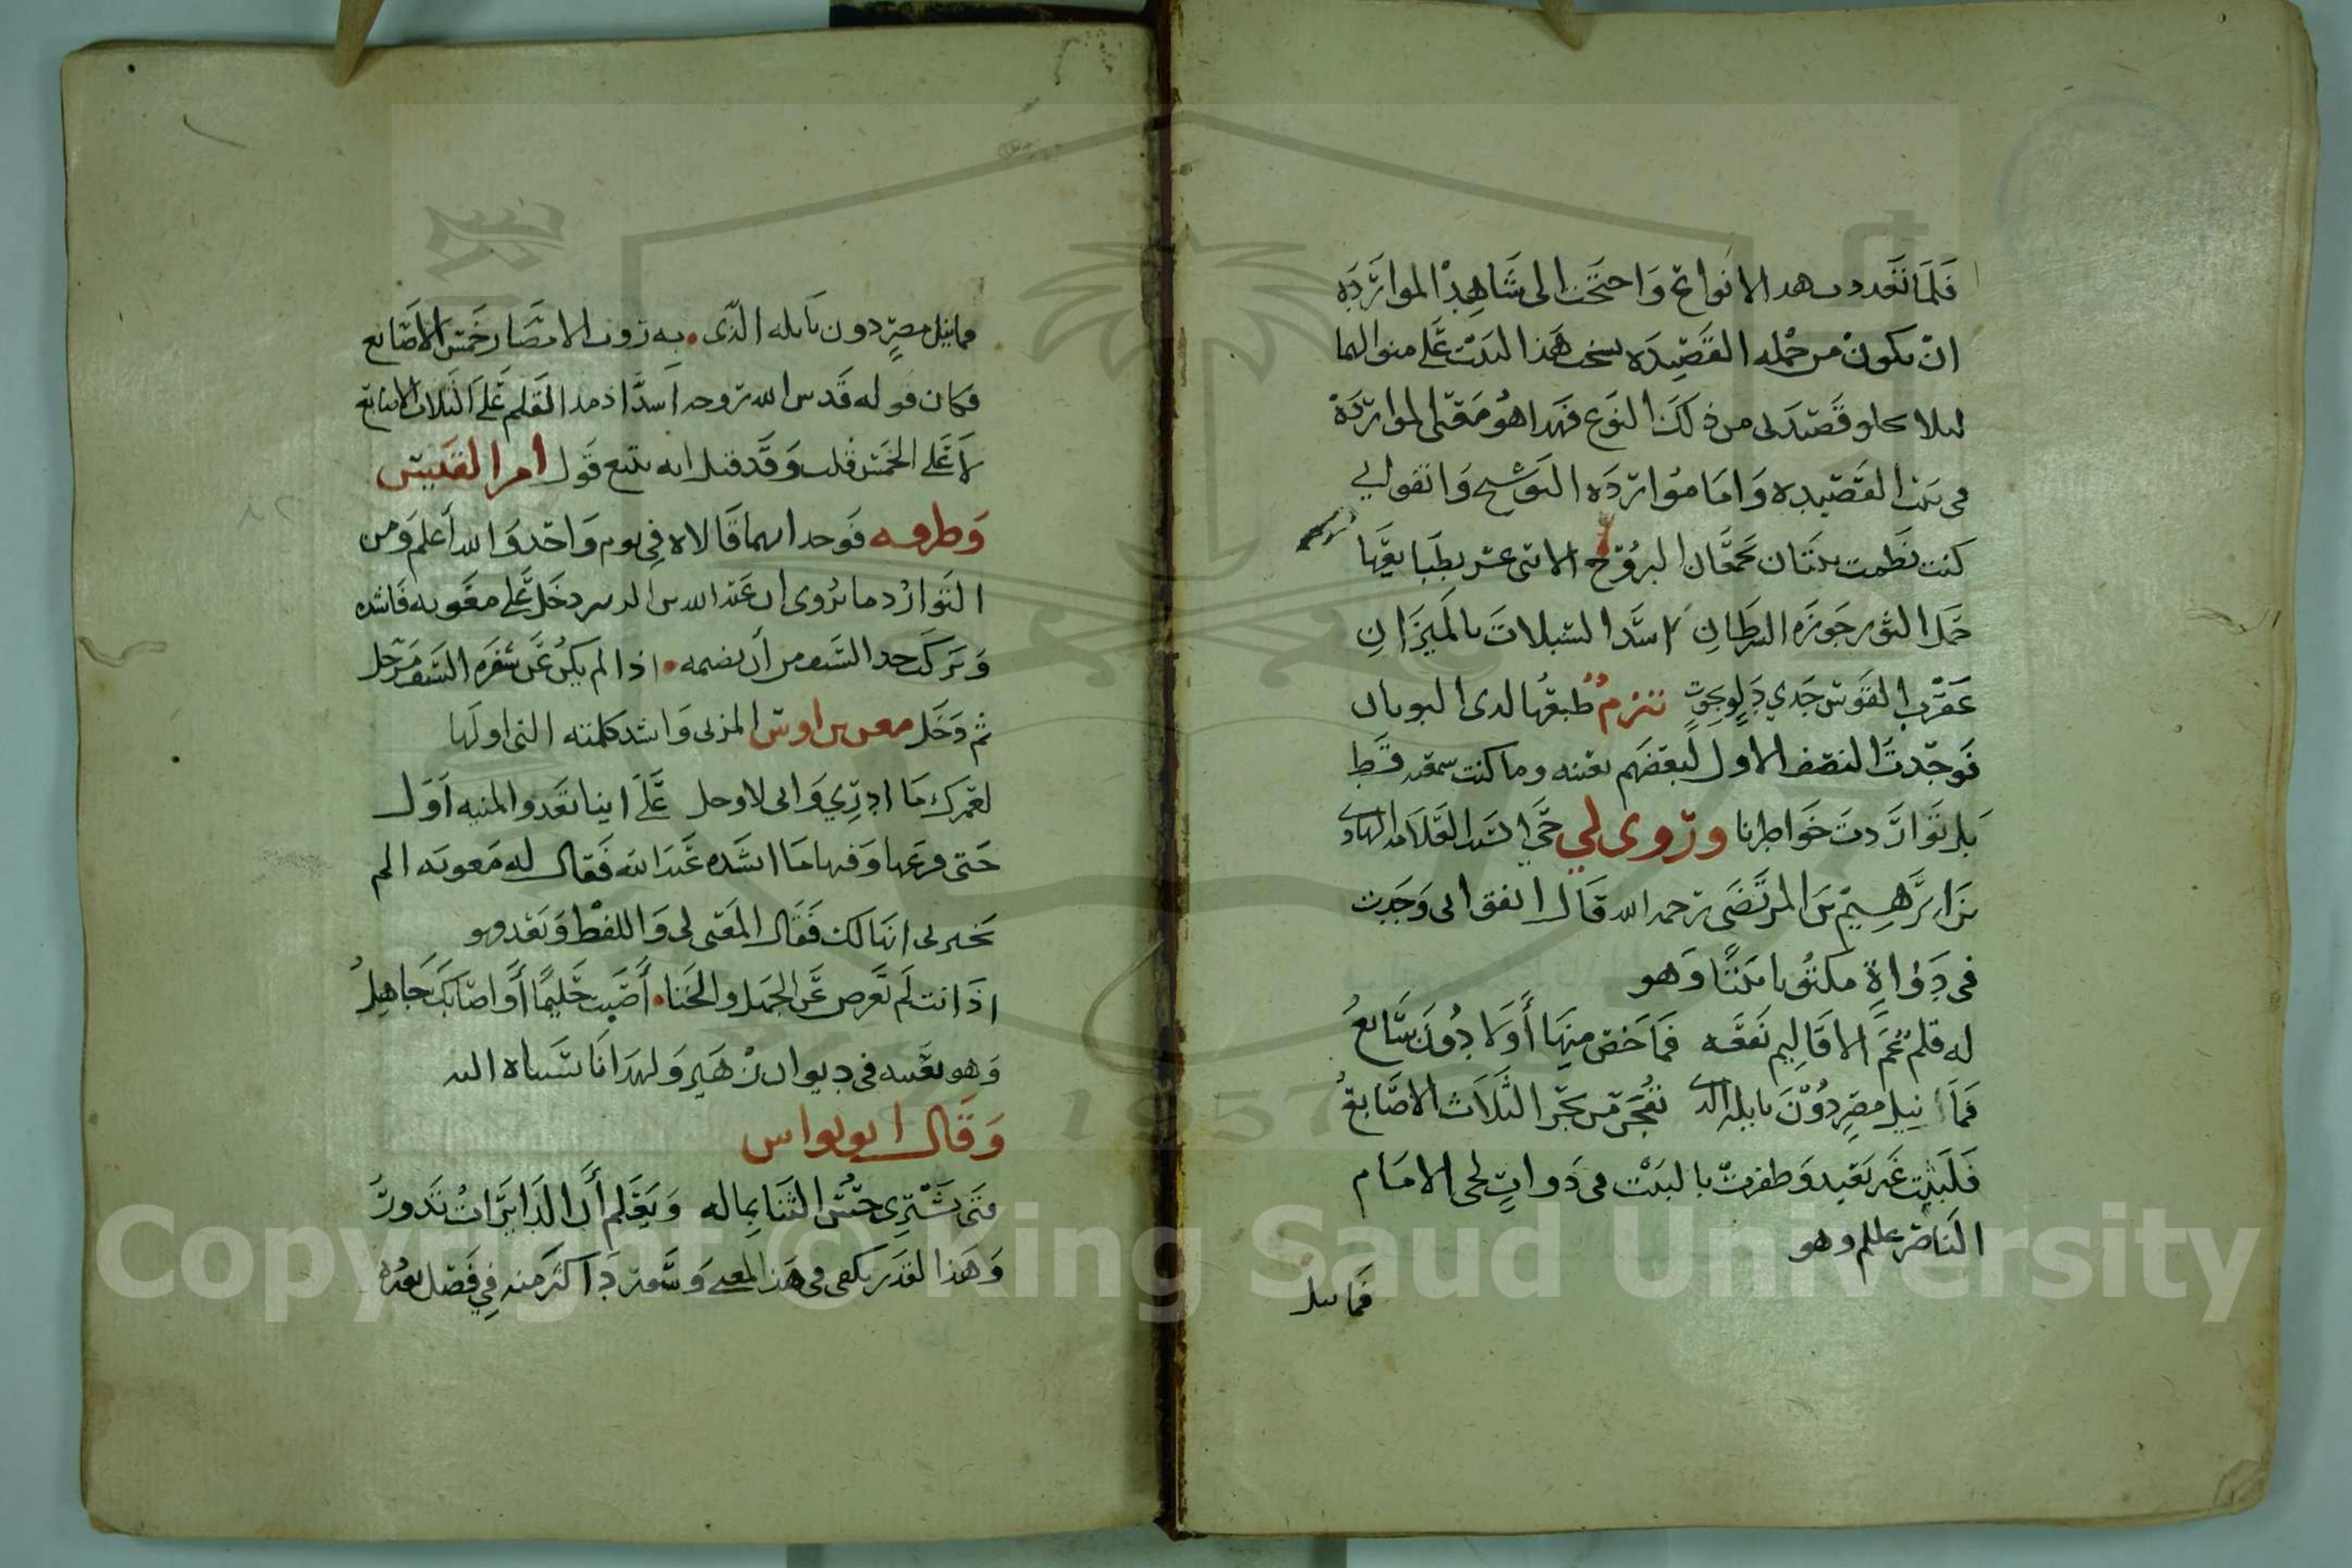 فلما تعددت هذه الانواع وَاحتجت الى شَاهِد الموارَدَه
انْ يكونَ من جُمله القَصِيدَه نسخت هَذا البَيْت عَلى منوالها
ليلا تخلو قَصيدتى من ذلكَ النوَع فهذا هُو مَعنى الموارَدَة
فى بيت القَصِيده وَامَا مُوارَدَه التوَشيح وَاتفق لي
كنت نظمت بيتَان يجمعَان البرُوُج الاثنى عشر بطبَايعِهَا
حَمل الثور جَوزَه السَرطَانِ اسَد السنبلات بالميزَانِ
عَقرَب القَوس جَدي دَلو حوتٍ طبعُها لدى اليونان
فوَجَدتَ النصَف الاول لبعضَهم بعَينه وما كنت سمعته قط
بَل تَوارَدتَ خَوَاطرنا وروى لي حَي السَيد العَلاَمه الهادى
بنَ ابرَاهِيم بنَ المرتَضَى رَحمه الله قَال اتفق انى وَجَدت
فى دَوَاةٍ مكتُوبا بَيتًا وَهو
له قلم عَمَ الاقَاليم نَفعَه فمَا خَص منِهَا أَولا دُونَ سَابعُ
فَمَا نيل مصِر دُوْنَ بابل الذى تفجرَ من بحَر الثَلاَث الاصَابعُ
فَلَبثت غَير بَعيد وَظفرتْ بالبَيْت فى دَوَاتٍ لحى الامَام
النَاصَر عللم وهو
فما نيل
فما نيل مصِرٍ دون بَابله الذى به تروى الامصَار خَمس الاصَابع
فكان قوله قَدس الله روحه اسدَّ اذ مد القَلم عَلى الثلاث الاصَابع
لاَ عَلى الخمسَ قلت وَقد قيل انه يتبع قول امرا القيس
وَطرفه فوَجد انهما قَالاه فى يوم وَاحد وَالله اَعلم وَمن
التَوارُد ما يرُوى ان عَبد الله بن الزبير دخَل عَلى معَويه فَانشده
وَيَركَب حد السَيف من أن تضيمه اذا لم يكنُ عَن شفرَه السَيف مَزحَل
ثم دَخَل معن بن اوس المزنى وَانشد كلمته التى اولَها
لعَمرك مَا ادرِي وَانى لاوجل عَلى اينا تعَدو المنيه اَوَل
حَتى فرغ منها وَفيها مَا انشدَه عَبد الله فَقال له مَعويه الم
تخَبرنى انها لك فَقَال المَعنى لى وَاللفظ وَبَعد وهو
اذَا انت لَم تَعرض عَن الجهَل والخَنا أَصَبت حَليمًا أو اصَابَكَ جَاهلُ
وَهو بعَينه فى ديوان زهَير وَلهَذا
وَقال ابو نواس
فتى يَشتَرى حسُن الثنَا بماله وَيَعَلم أن الدَايرَات تَدورُ
وَهَذا القدَر يكفى فى هَذا المعنى وَستَرد اكثَر منه فِي فَصل بعَده
Copyright © King Saud University
1957